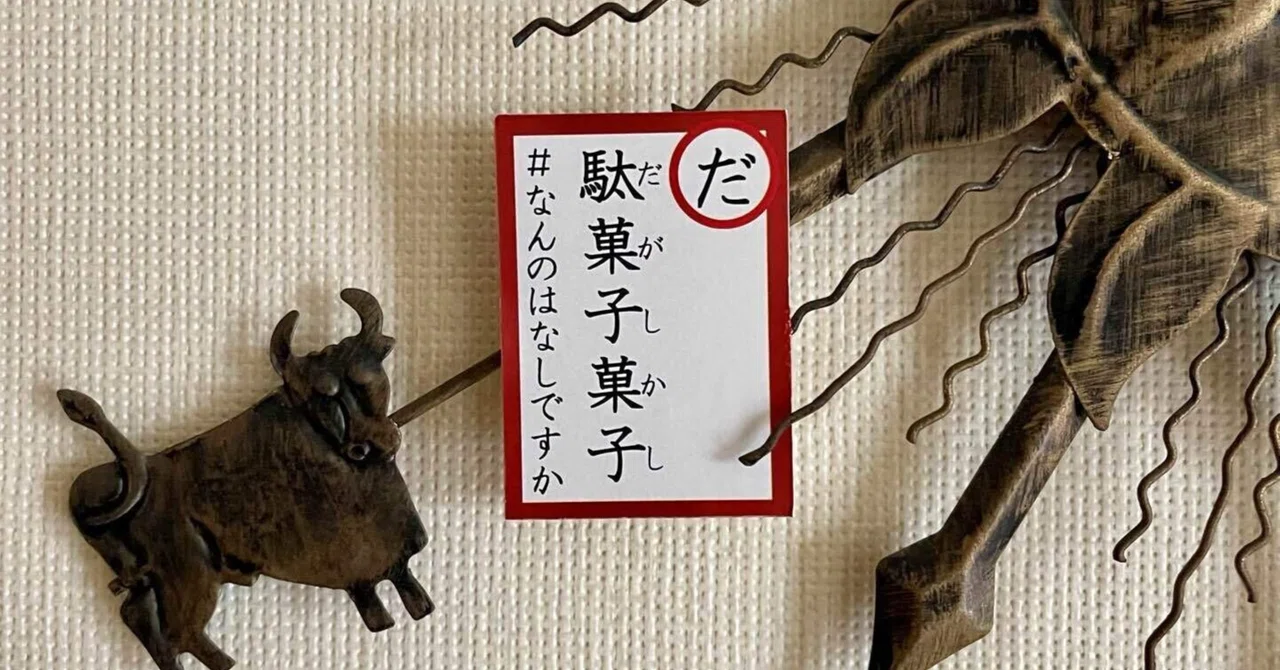 だ
駄菓子菓子
だがしかし
#なんのはなしですか